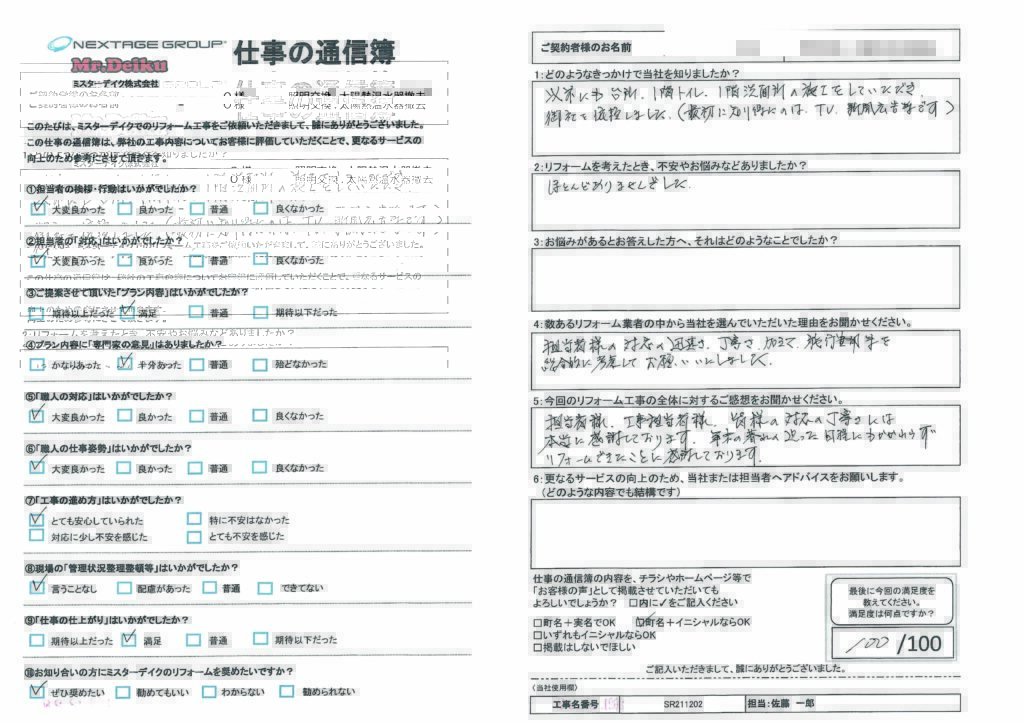 NEXTAGE GROUP
仕事の通信簿
Mr.Deiku
ミスターデイク株式会社
O様 照明交換、太陽熱温水器撤去
このたびは、ミスターデイクでのリフォーム工事をご依頼いただきまして、誠にありがとうございました。
この仕事の通信簿は、弊社の工事内容についてお客様に評価していただくことで、更なるサービスの
向上のため参考にさせて頂きます。
①担当者の挨拶・行動はいかがでしたか?
大変良かった 良かった 普通 良くなかった
②担当者の「対応」はいかがでしたか?
大変良かった 良かった 普通 良くなかった
③ご提案させて頂いた「プラン内容」はいかがでしたか?
期待以上だった 満足 普通 期待以下だった
④プラン内容に「専門家の意見」はありましたか?
かなりあった 半分あった 普通 殆どなかった
⑤「職人の対応」はいかがでしたか?
大変良かった 良かった 普通 良くなかった
⑥「職人の仕事姿勢」はいかがでしたか?
大変良かった 良かった 普通 良くなかった
⑦「工事の進め方」はいかがでしたか?
とても安心していられた 特に不安はなかった
対応に少し不安を感じた とても不安を感じた
⑧現場の「管理状況整理整頓等」はいかがでしたか?
言うことなし 配慮があった 普通 できてない
⑨「仕事の仕上がり」はいかがでしたか?
期待以上だった 満足 普通 期待以下だった
⑩お知り合いの方にミスターデイクのリフォームを奨めたいですか?
ぜひ奨めたい 勧めてもいい わからない 勧められない
ご契約者様のお名前
1:どのようなきっかけで当社を知りましたか?
以前にも台所、1階トイレ、1階洗面所の施工をしていただき、
御社を しました。(最初に知り得たのは、TV、新聞広告等です)
2:リフォームを考えたとき、不安やお悩みなどありましたか?
ほとんどありませんでした。
3:お悩みがあるとお答えした方へ、それはどのようなことでしたか?
4:数あるリフォーム業者の中から当社を選んでいただいた理由をお聞かせください。
担当者様の対応の迅速さ、丁寧さ、加えて、施行費用等を
総合的に考慮してお願いいたしました。
5:今回のリフォーム工事の全体に対するご感想をお聞かせください。
担当者様、工事担当者様、皆様の対応の丁寧さには
本当に感謝しております。年末の暮れの迫った日程にもかかわらず
リフォームできたことに感謝しております。
6:更なるサービスの向上のため、当社または担当者へアドバイスをお願いします。
(どのような内容でも結構です)
仕事の通信簿の内容を、チラシやホームページ等で
「お客様の声」として掲載させていただいても
よろしいでしょうか? □内に✓をご記入ください
□町名+実名でOK ☑町名+イニシャルならOK
□いずれもイニシャルならOK
□掲載はしないでほしい
最後に今回の満足度を
教えてください。
満足度は何点ですか?
100/100
ご記入いただきまして、誠にありがとうございました。
(当社使用欄)
工事名番号 SR211202 担当:佐藤 一郎